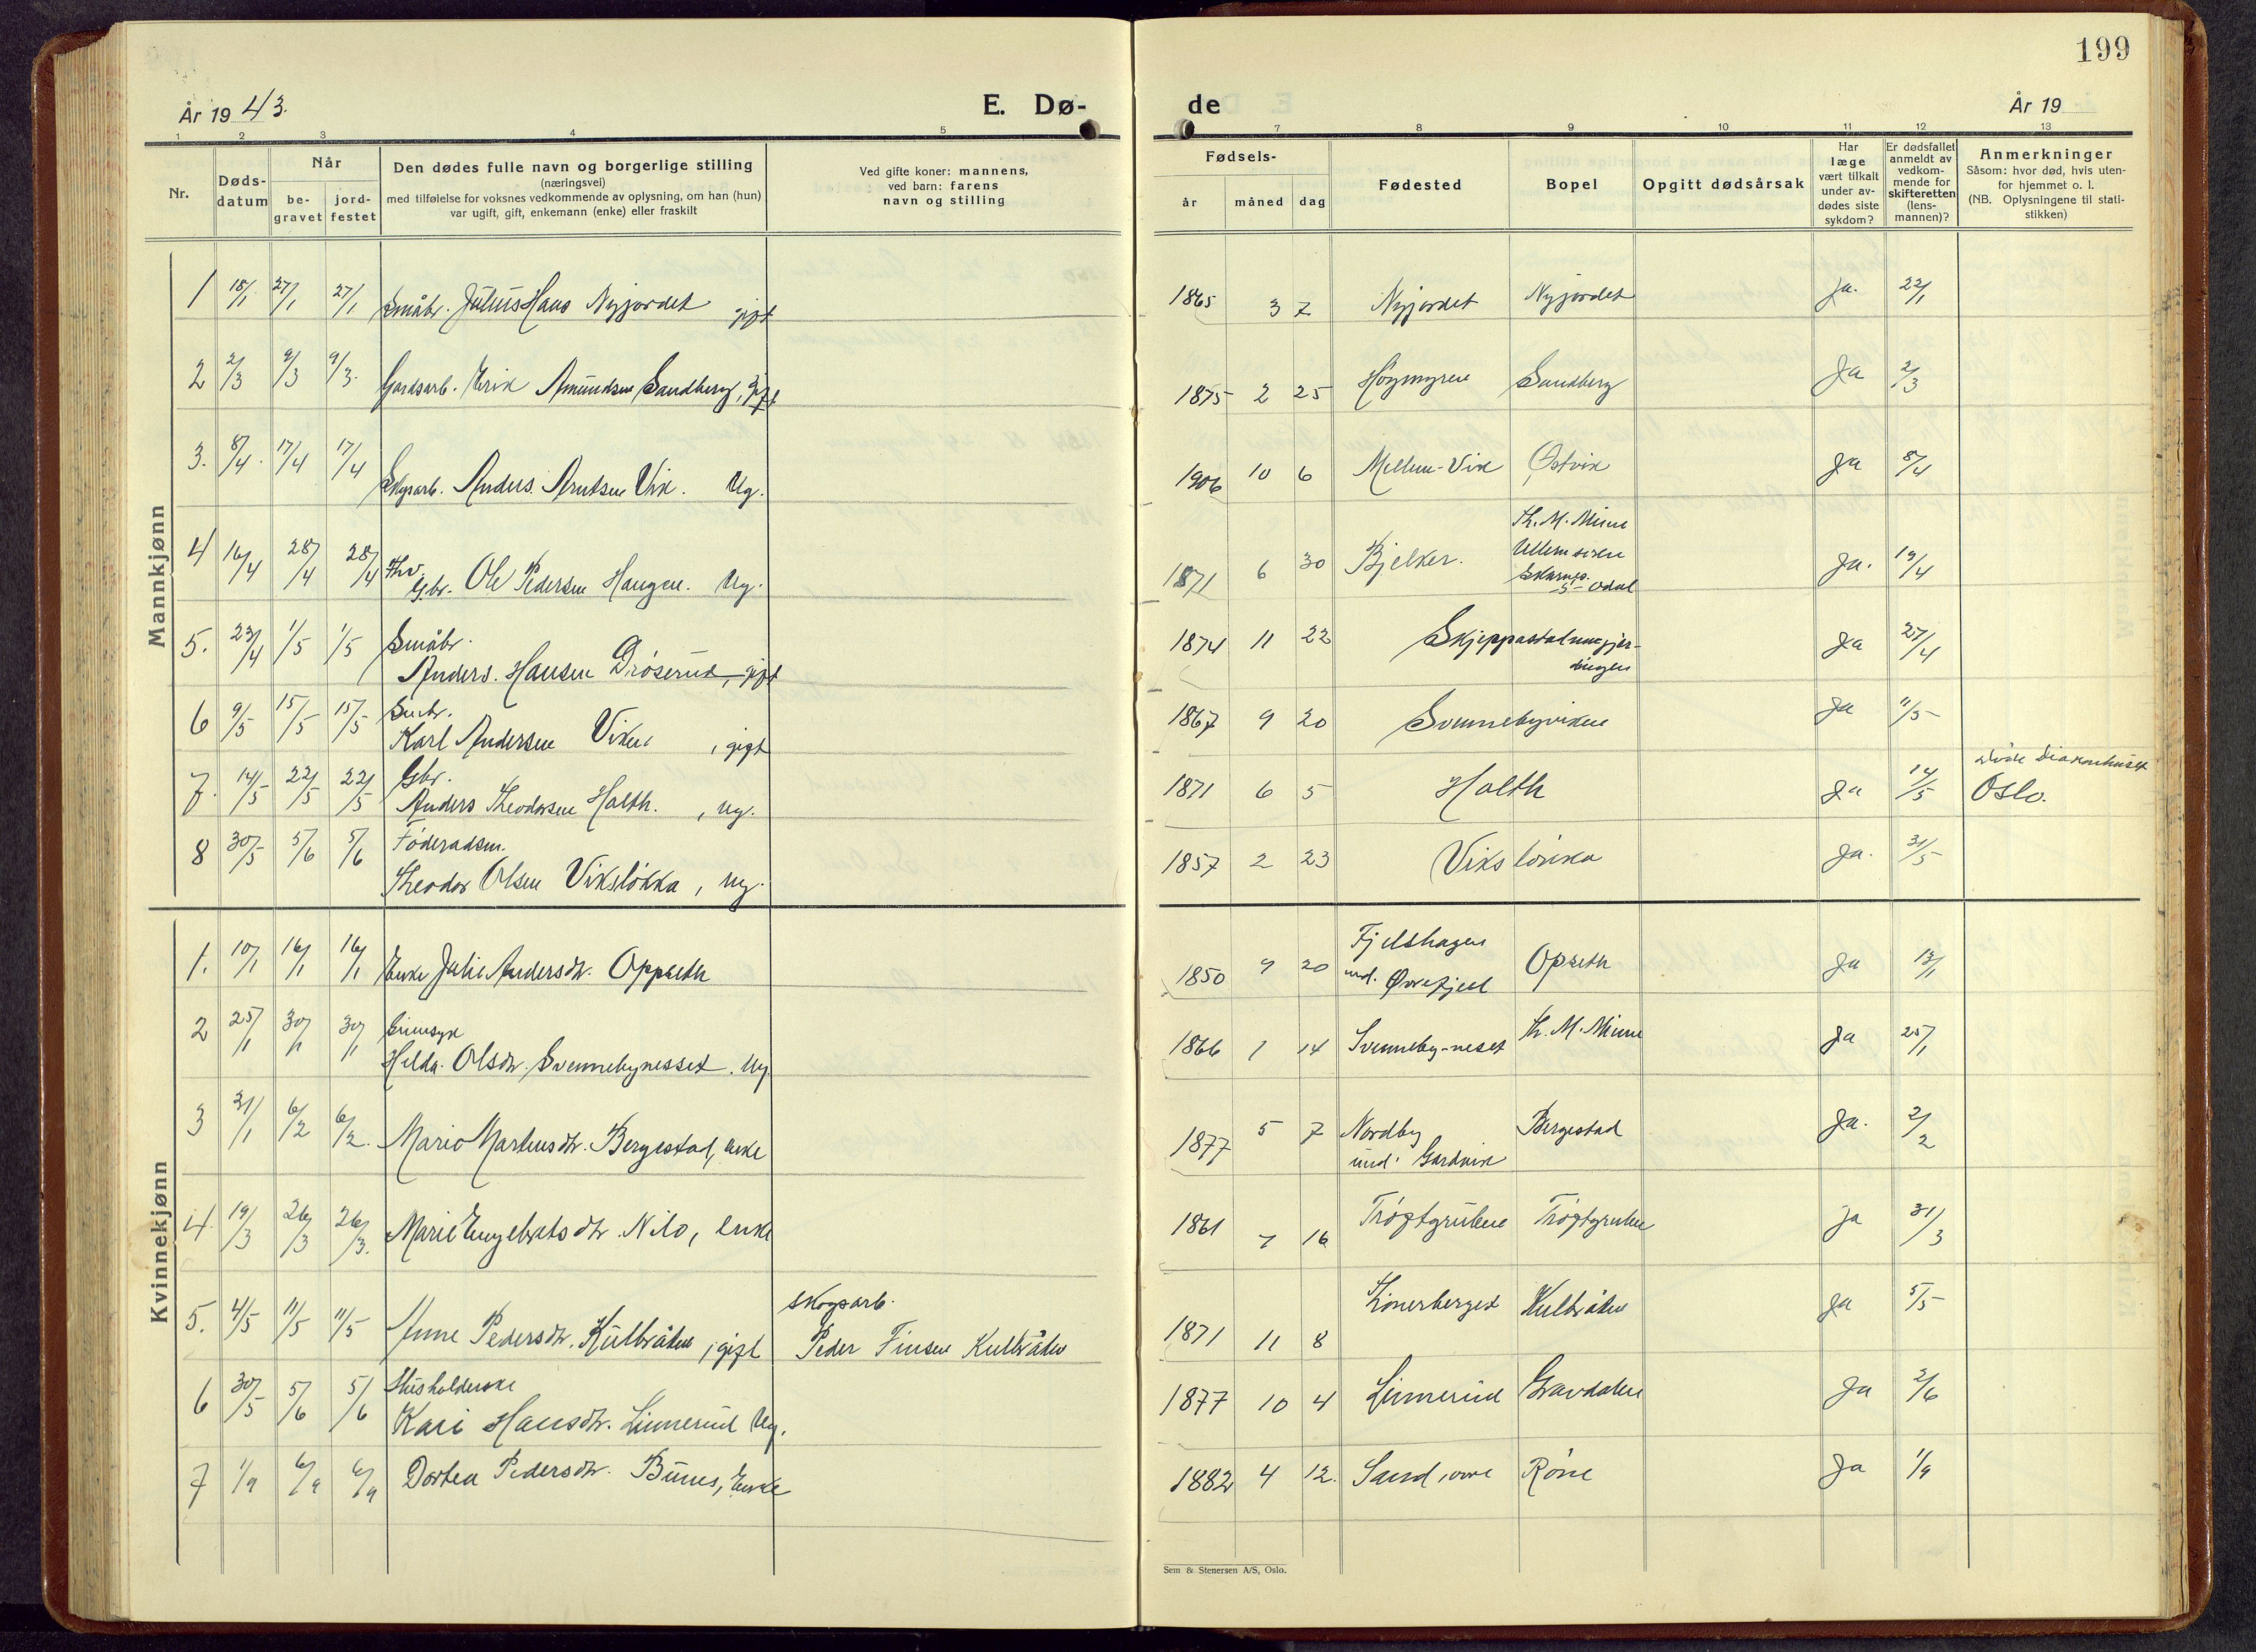 199
År 1943.
E. Dø-
de
År 19
1 2 3 4 5
7 8 9 10 11 12 13
Nr.
Døds-
datum
Når
be-
gravet
jord-
festet
Den dødes fulle navn og borgerlige stilling
(næringsvei)
med tilføielse for voksnes vedkommende av oplysning, om han (hun)
var ugift, gift, enkemann (enke) eller fraskilt
Ved gifte koner: mannens,
ved barn: farens
navn og stilling
Fødsels-
år måned dag
Fødested
Bopel
Opgitt dødsårsak
Har
læge
vært tilkalt
under av-
dødes siste
sykdom?
Er dødsfallet
anmeldt av
vedkom-
mende for
skifteretten
(lens-
mannen)?
Anmerkninger
Såsom: hvor død, hvis uten-
for hjemmet o. l.
(NB. Oplysningene til stati-
stikken)
Mannkjønn
1 18/1 27/1 27/1 Småbr. Julius Hans Nyjordet gift 1865 3 7 Nyjordet Nyjordet Ja. 22/1
2 2/3 9/3 9/3. Gardsarb. Erik Amundsen Sandberg, gift 1875 2 25 Høgmyren Sandberg Ja 2/3
3. 8/4. 17/4 17/4 Skogsarb. Anders Arntsen Vik. Ug. 1906 10 6 Mellem-Vik Østvik Ja 8/4
4 16/4 28/4 28/4 Fhv.
Gbr. Ole Pedersen Haugen. Ug. 1871 6 30 Bjelker. Th. M. Minne
Skarnes.
S-Odal Ja. 19/4
5. 23/4 1/5 1/5 Småbr.
Anders Hansen Drøserud, gift 1874 11 22 Ja 27/4
6 9/5 15/5 15/5 Småbr.
Karl Andersen Viken, gift 1867 9 20 Svennebyviken Ja 11/5
7. 14/5 22/5 22/5 Gbr.
Anders Theodorsen Holth., ug. 1871 6 5 Holth Ja 14/5 døde Diakonhuset
Oslo.
8 30/5 5/6 5/6 Føderadsm.
Theodor Olsen Viksløkka, ug. 1857 2 23 Viksløkka Ja. 31/5
Kvinnekjønn
1. 10/1 16/1 16/1 Enke Julie Andersdtr. Oppseth 1850 9 20 Fjelshagen
und. Øvrefjell Opseth Ja 13/1
2 25/1 30/1 30/1 Sinnsyk
Helda Olsdtr. Svennebynesset. Ug. 1866 1 14 Svenneby-neset Th. M. Minne Ja 25/1
3 31/1 6/2 6/2. Marie Martensdtr. Bergestad, enke 1877 5 7 Nordby
und. Gardvik Bergestad Ja. 2/2
4. 19/3 26/3 26/3. Marie Engebretsdtr. Nilo, enke 1861 7 16 Trøftgruben Trøftgruben Ja 31/3
5. 4/5 11/5 11/5 Anne Pedersdtr. Kulbråten, gift skogsarb.
Peder Finsen Kulbråten 1871 11 8 Kulbråten Ja 5/5
6 30/5 5/6 5/6 Husholderske
Kari Hansdtr. Linnerud Ug. 1877 10 4 Linnerud Gravdalen Ja 2/6
7 1/9 6/9 6/9 Dortea Pedersdtr. Bunes, Enke 1882 4 12. Sand, øvre Røne Ja 1/9
Sem & Stenersen A/S, Oslo.